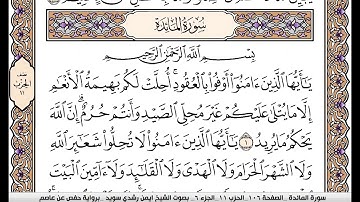 سُورَةُ المَائِدَةِ
بِسْمِ اللَّهِ الرَّحْمَٰنِ الرَّحِيمِ
يَٰٓأَيُّهَا ٱلَّذِينَ ءَامَنُوٓاْ أَوْفُواْ بِٱلْعُقُودِۚ أُحِلَّتْ لَكُم بَهِيمَةُ ٱلْأَنْعَٰمِ
إِلَّا مَا يُتْلَىٰ عَلَيْكُمْ غَيْرَ مُحِلِّى ٱلصَّيْدِ وَأَنتُمْ حُرُمٌۗ إِنَّ ٱللَّهَ
يَحْكُمُ مَا يُرِيدُ ١ يَٰٓأَيُّهَا ٱلَّذِينَ ءَامَنُواْ لَا تُحِلُّواْ شَعَٰٓئِرَ ٱللَّهِ
وَلَا ٱلشَّهْرَ ٱلْحَرَامَ وَلَا ٱلْهَدْىَ وَلَا ٱلْقَلَٰٓئِدَ وَلَآ ءَآمِّينَ ٱلْبَيْتَ
الحزب
١١
سورة المائدة _ الصفحة ١٠٦ _ الحزب ١١ _ الجزء ٦ _ بصوت الشيخ ايمن رشدي سويد _ برواية حفص عن عاصم